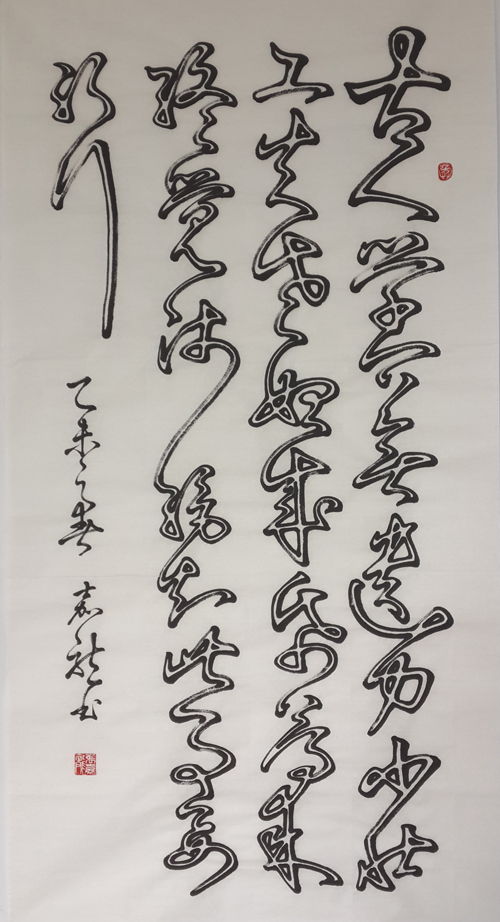 古人学问无遗力少壮
工夫老始成纸上得来
终觉浅绝知此事要
躬行
乙未春 志龙书